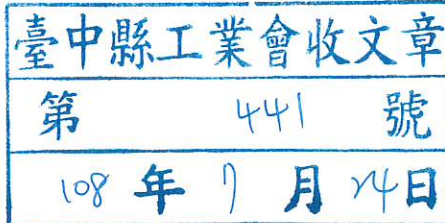 臺中縣工業會收文章
第 441 號
108 年 7 月 24 日